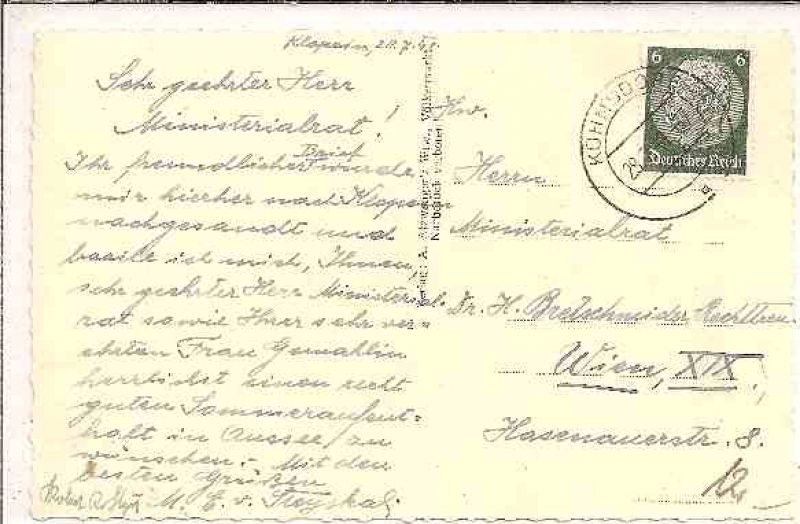 Klopein, 28.7.41.
Sehr geehrter Herr
Ministerialrat!
Ihr freundlicher Brief wurde
mir hierher nach Klopein
nachgesandt und
beeile ich mich, Ihnen,
sehr geehrter Herr Ministerial-
rat sowie Ihrer sehr ver=
ehrten Frau Gemahlin
herzlichst einen recht
guten Sommeraufent=
halt in Aussee zu
wünschen. - Mit den
besten Grüßen
M. E. v.
Verlag: A. Wien,
Nachdruck verboten
Hw.
Herrn
Ministerialrat
Dr. H. Bretschneider,
Wien, XIX.,
Hasenauerstr. 8.
12
6 6
Deutsches Reich
KÜHNSDORF
28.